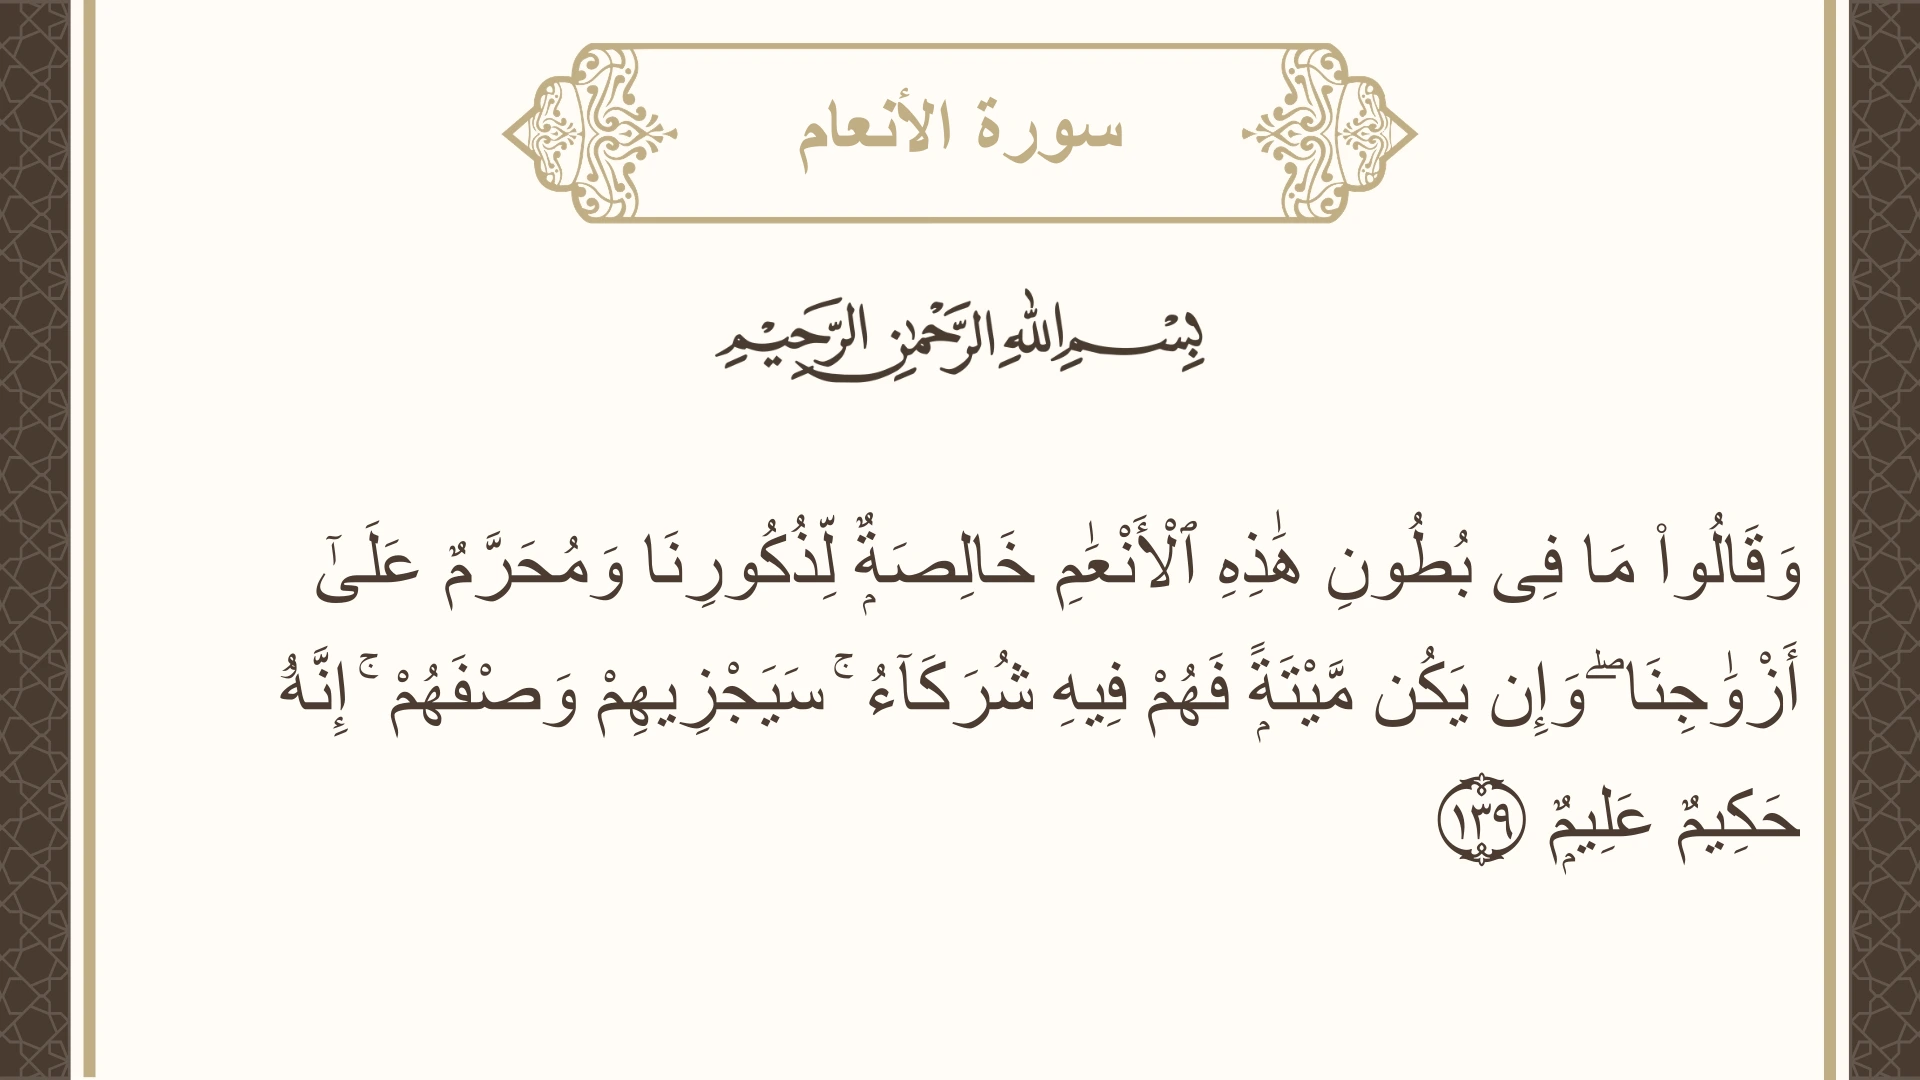 سورة الأنعام
بِسْمِ اللهِ الرَّحْمٰنِ الرَّحِيْمِ
وَقَالُوا۟ مَا فِى بُطُونِ هَٰذِهِ ٱلْأَنْعَٰمِ خَالِصَةٌۭ لِّذُكُورِنَا وَمُحَرَّمٌ عَلَىٰٓ
أَزْوَٰجِنَا ۖ وَإِن يَكُن مَّيْتَةًۭ فَهُمْ فِيهِ شُرَكَآءُ ۚ سَيَجْزِيهِمْ وَصْفَهُمْ ۚ إِنَّهُۥ
حَكِيمٌ عَلِيمٌۭ ١٣٩